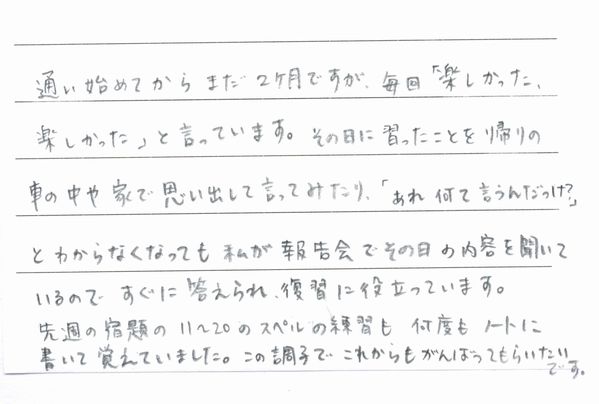 通い始めてからまだ2ケ月ですが、毎回「楽しかった、
楽しかった」と言っています。その日に習ったことを帰りの
車の中や家で思い出して言ってみたり、「あれ何て言うんだっけ？」
とわからなくなっても私が報告会でその日の内容を聞いて
いるので すぐに答えられ、復習に役立っています。
先週の宿題の11～20のスペルの練習も 何度もノートに
書いて覚えていました。この調子でこれからもがんばってもらいたい
です。